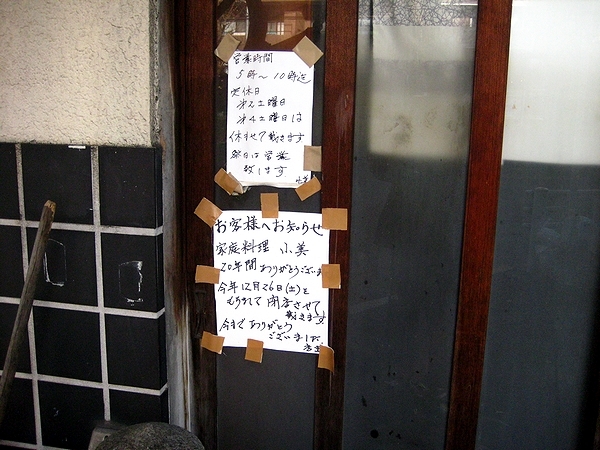 営業時間
5時〜10時迄
定休日
第2土曜日
第4土曜日は
休ませて戴きます
祭日は営業
致します
小美
お客様へお知らせ
家庭料理 小美
20年間ありがとうございま
今年12月26日(土)を
もちまして閉店させて
戴きます
今までありがとう
ございました。
店主